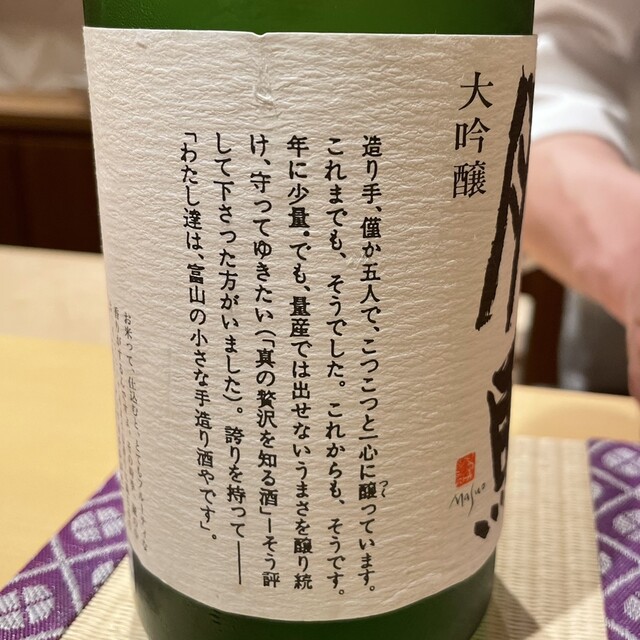 大吟醸
Masuo
造り手、僅か五人で、こつこつと一心に醸っています。
これまでも、そうでした。これからも、そうです。
年に少量。でも、量産では出せないうまさを醸り統
け、守ってゆきたい(「真の贅沢を知る酒」―そう評
して下さった方がいました)。誇りを持って――
「わたし達は、富山の小さな手造り酒やです」。